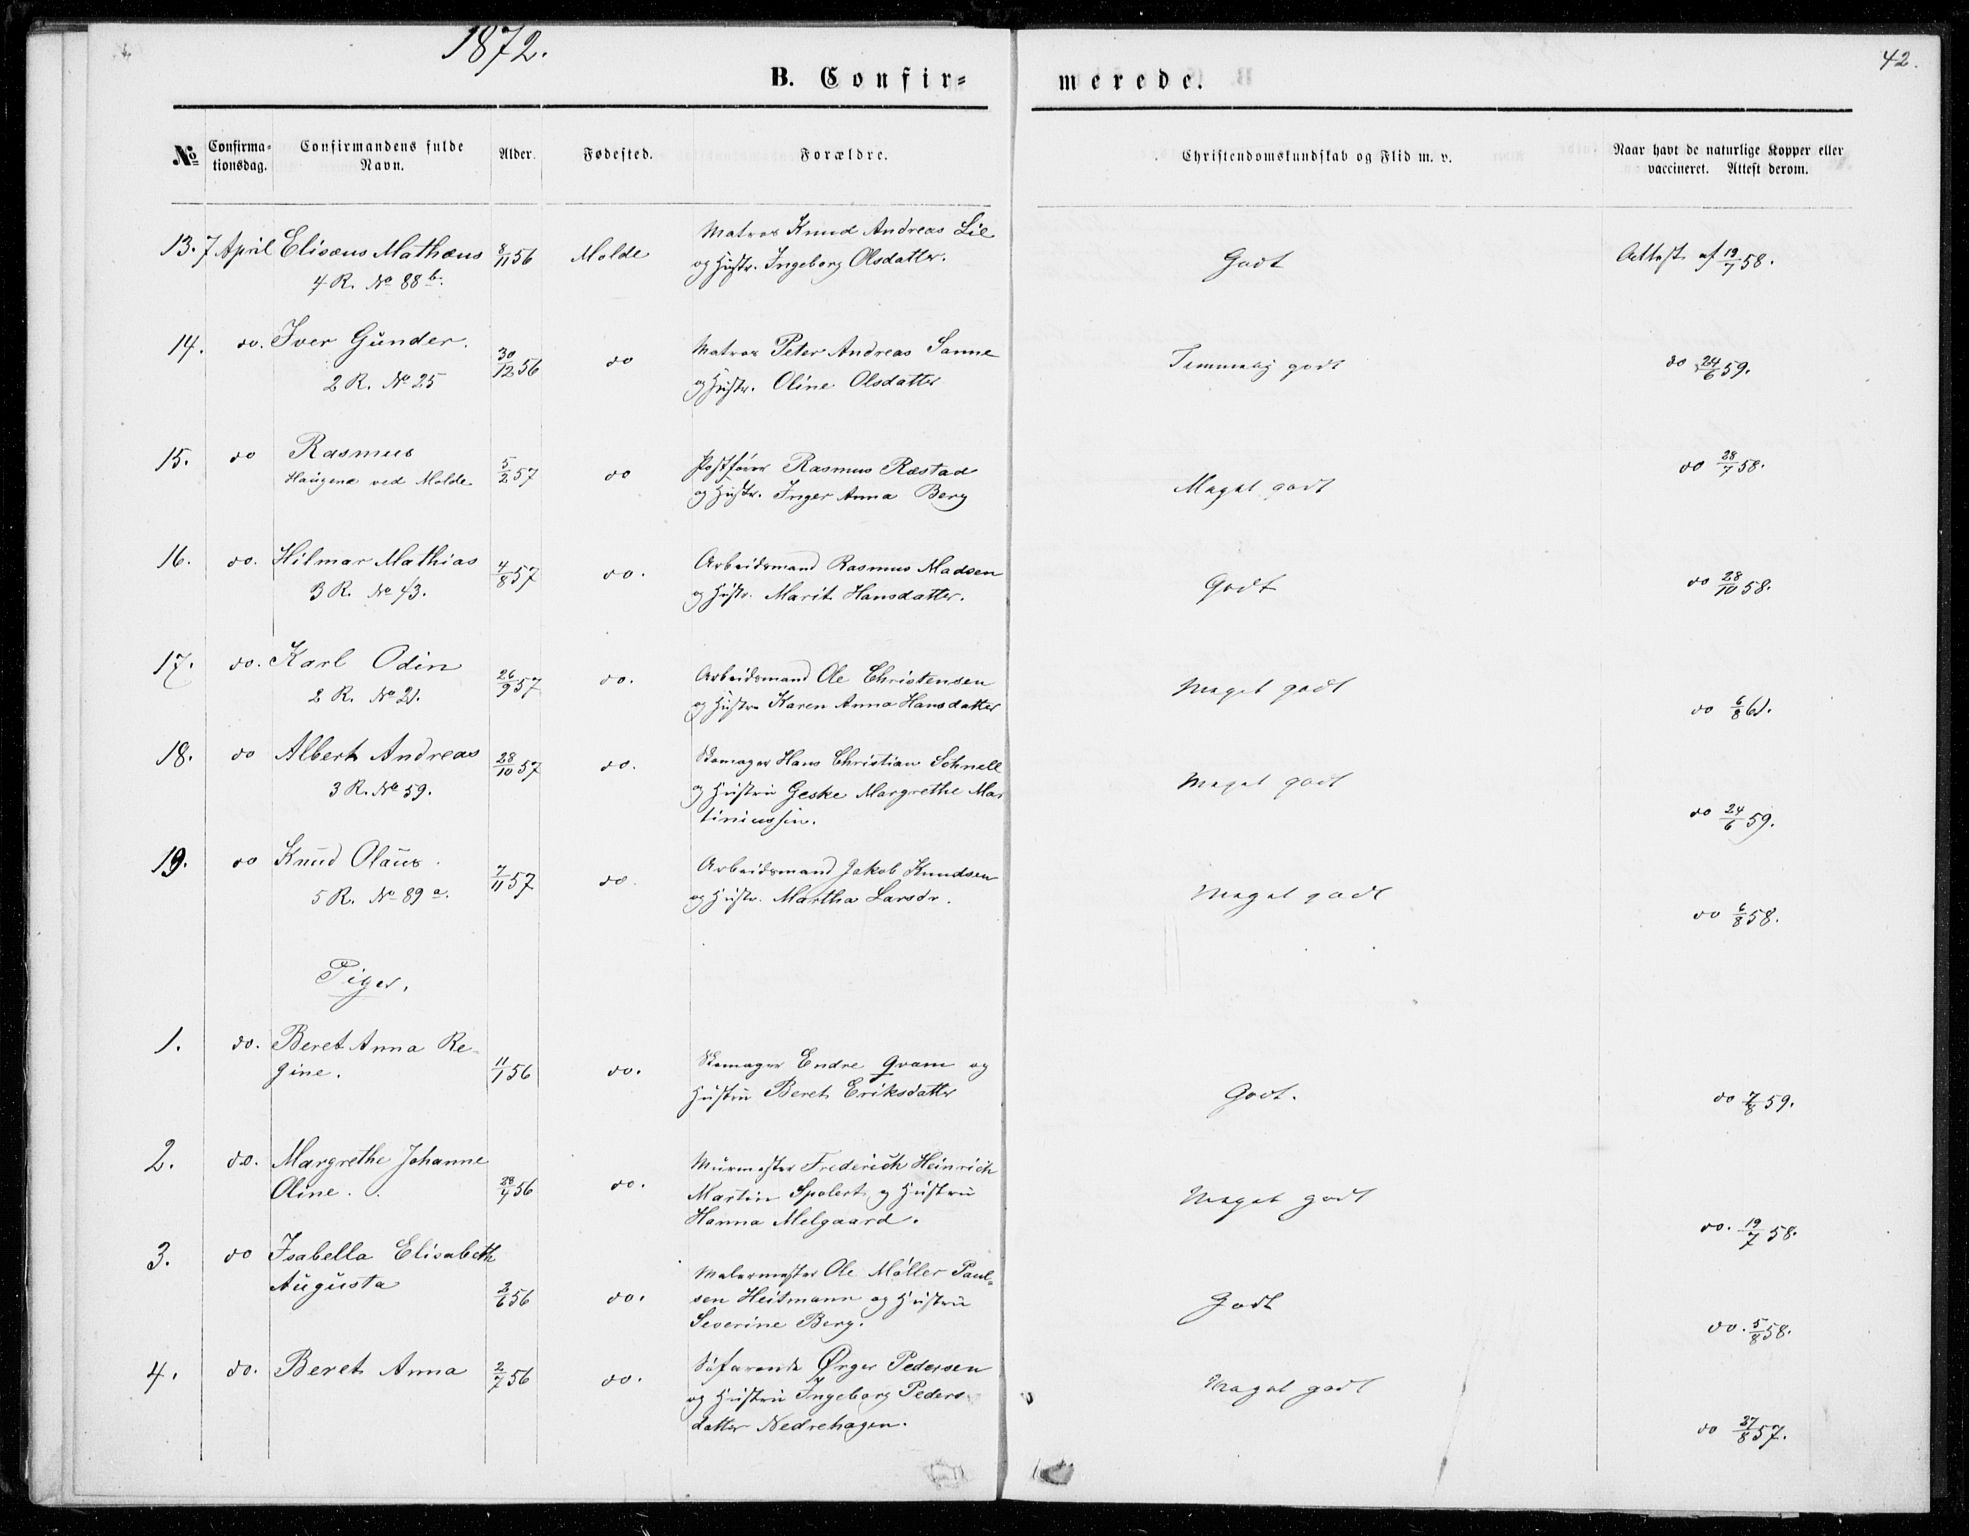 1872.
42.
B. Confir-
merede.
No
Confirma-
tionsdag.
Confirmandens fulde
Navn.
Alder.
Fødested.
Forældre.
Christendomskundskab og Flid m. v.
Naar havt de naturlige Kopper eller
vaccineret. Attest derom.
13. 7 April Elisæus Mathæus 8/11 56 Molde Matros Knud Andreas Lie
4 R. No 88 b. og Hustr. Ingeborg Olsdatter. Godt Attest af 19/7 58.
14. do. Iver Gunder. 30/12 56 do Matros Peter Andreas Sanne
2 R. No 25 og Hustr. Oline Olsdatter Temmelig godt do 24/6 59.
15. do Rasmus 5/2 57 do Postfører RasmusRæstad
Haugene ved Molde og Hustr. Inger Anna Berg Meget godt do 28/7 58.
16. do. Hilmar Mathias 4/8 57 do. Arbeidsmand Rasmus Madsen
3 R. No 43. og Hustr. Marit Hansdatter. Godt do 28/10 58.
17. do. Karl Odin 26/9 57 do. Arbeidsmand Ole Christensen
2 R. No 21. og Hustr. Karen Anna Hansdatter Meget godt do 6/8 61.
18. do Albert Andreas 28/10 57 do. Skomager Hans Christian Schnell
3 R. No 59. og Hustru Geske Margrethe Mar
tiniussen. Meget godt do 24/6 59.
19. do Knud Olaus. 7/11 57 do. Arbeidsmand Jakob Knudsen
5 R. No 89 a. og Hustr. Martha Larsdr. Meget godt do 6/8 58.
Piger.
1. do. Beret Anna Re-
gine. 11/1 56 do. Skomager Endre Qvam og
Hustru Beret Eriksdatter Godt. do 7/8 59.
2. do. Margrethe Johanne
Oline. 28/4 56 do. Murmester Frederich Heinrich
Martin Spolert og Hustru
Hanna Melgaard. Meget godt do. 19/7 58.
3. do Isabella Elisabeth
Augusta 2/6 56 do. Malermester Ole Møller Paul-
sen Heitmann og Hustru
Severine Berg. Godt do. 5/8 58.
4. do. Beret Anna 2/7 56 do. Søfarende Ørger Pedersen
og Hustru Ingeborg Peders
datter Nedrehagen. Meget godt do 27/8 57.